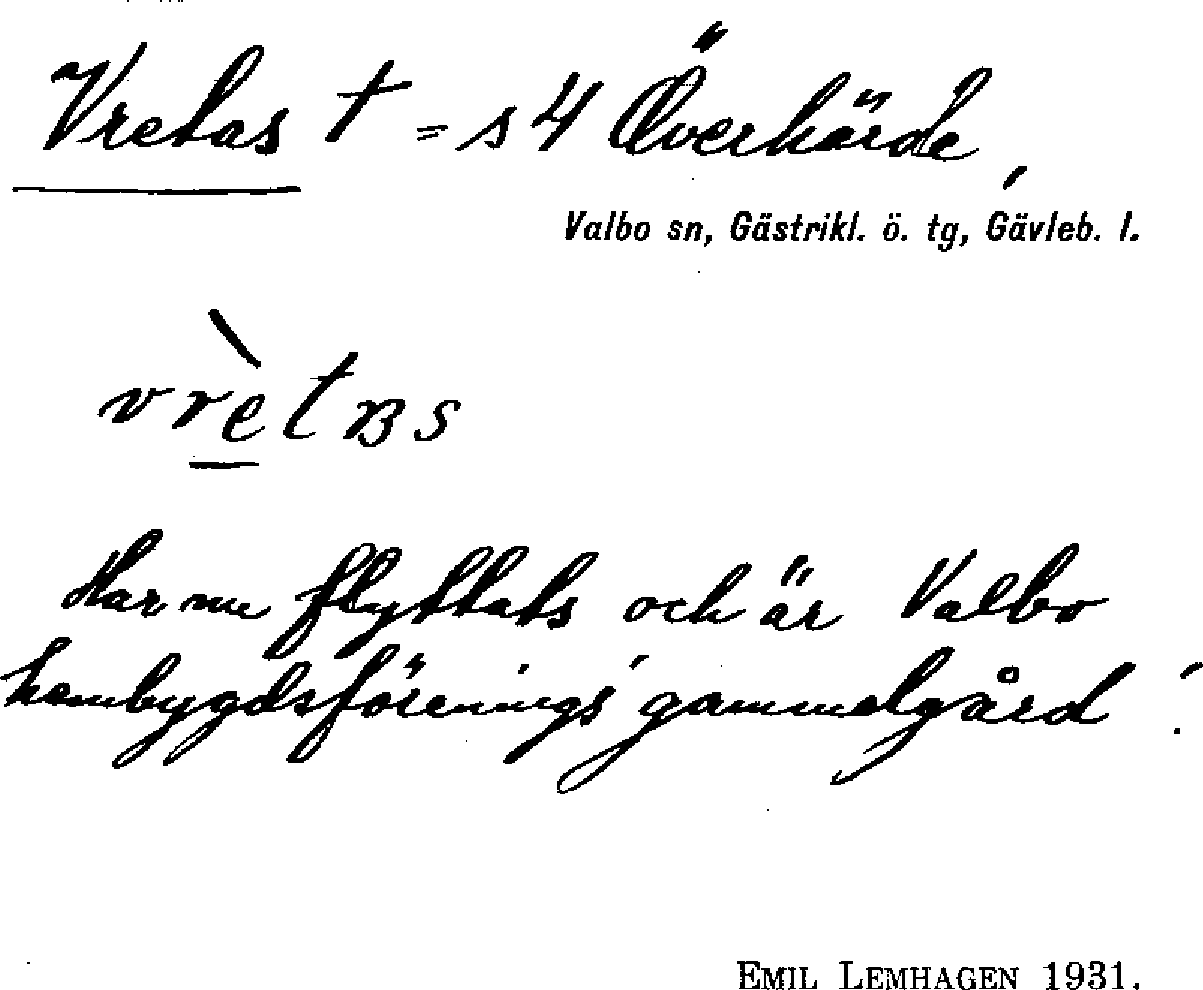 Vretas t = s 4 Överhärde,
Valbo sn, Gästrikl. ö. tg, Gävleb. l.
vrètпs
Har nu flyttats och är Valbo
hembygdsförenings' gammelgård!
EMIL LEMHAGEN 1931.